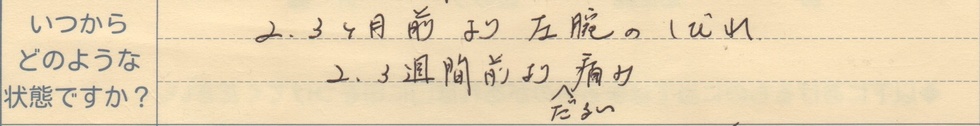 いつから
どのような
状態ですか？
2.3ヶ月前より左腕のしびれ
2.3週間前より痛み
だるい